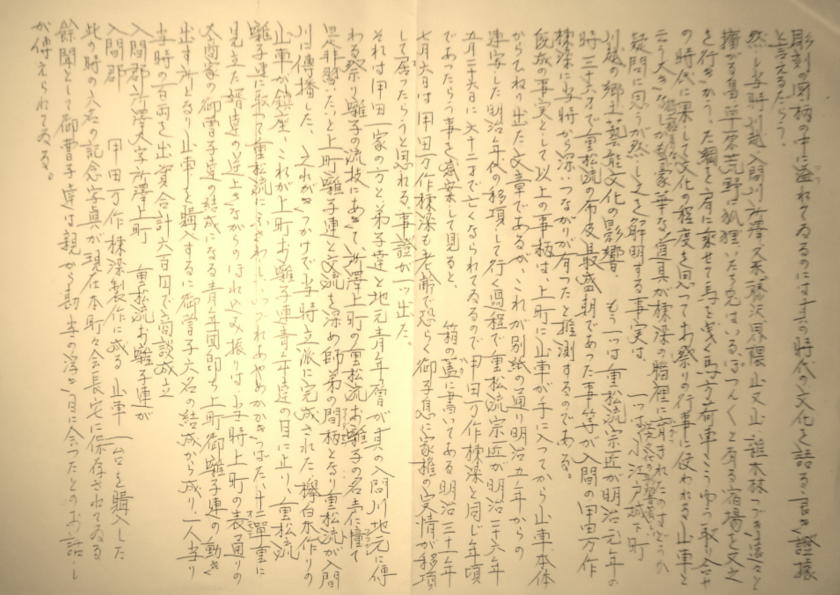 彫刻の図柄の中に溢れてゐるのには其の時代の文化を語る言の證據
と言えるだらう。
然し当時川越入間川所澤久米藤沢界隈山又山、雑木林つづき遠々と
擴がる萱草原荒野に狐狸いたち兎はいるぽつんくと有る宿場を交さ
を行きかう、た綱を肩に乗せて馬を曳く馬方荷車こうゆう取り合せ
の時代に果して文化の程度を思つてお祭りの行事に使われる山車と
云う大きな しかも豪華な道具が棟深の脳裡に育まれたのはどうか
疑問に思うが然し之を解明する事実は 一つは江戸城下町
川越の郷土藝能文化の影響 もう一つは重松流宗匠が明治元年の
時三十六才で重松流の布及最盛期であった事等が入間の甲田万作
棟深に当時から深いつながりが有つたと推測するのである。
既成の事実として以上の事柄は、上町に山車が手に入つてから山車本体
からたねり出た文章であるが、これが別紙の通り明治五年からの
連字した明治年代の移項して行く過程で重松流宗匠が明治二十六年
五月二十六日に六十二才で亡くなられてゐるので甲田万作棟深と同じ年頃
であったらう事を感案して見ると、 箱の蓋に書いてある明治三十一年
七月六日は甲田万作棟深も老齢で恐らく御子息に家権の実情が移項
して居ったらうと思れる、事證が一ッ出た。
それは甲田一家の方と弟子達と地元青年層が其の入間川地元に傳
わる祭り囃子の流技にあきて所澤上町の重松流お囃子の名声に憧て
是非習いたいと上町囃子連と交流を深め師弟の間柄となり重松流が入間
川に傳播した 之れがきつかけで当時立派に完成された欅白木作りの
山車が鎮座、これが上町お囃子連青年達の目に止り、重松流
囃子連に取って重松流にふさわしいいづれあやめかかきつばた、十二單重に
見立た婿達の逆上きながらのほれ込み振りは当時上町の表通りの
大商家の御曹子達の結成になる青年團即ち上町御囃子連の動き
出す所となり山車を購入するに御曹子六名の結成から成り一人当り
当時の百両を出資合計六百円で商談成立
入間郡所澤大字所澤上町 重松流お囃子連が
入間郡 甲田万作棟深製作に成る山車一台を購入した
此の時の六名の記念写真が現在本町々会長宅に保存されてゐる
餘聞として御曹子達は親から勘当の浮き目に会つたとのお話し
が傳えられてゐる。